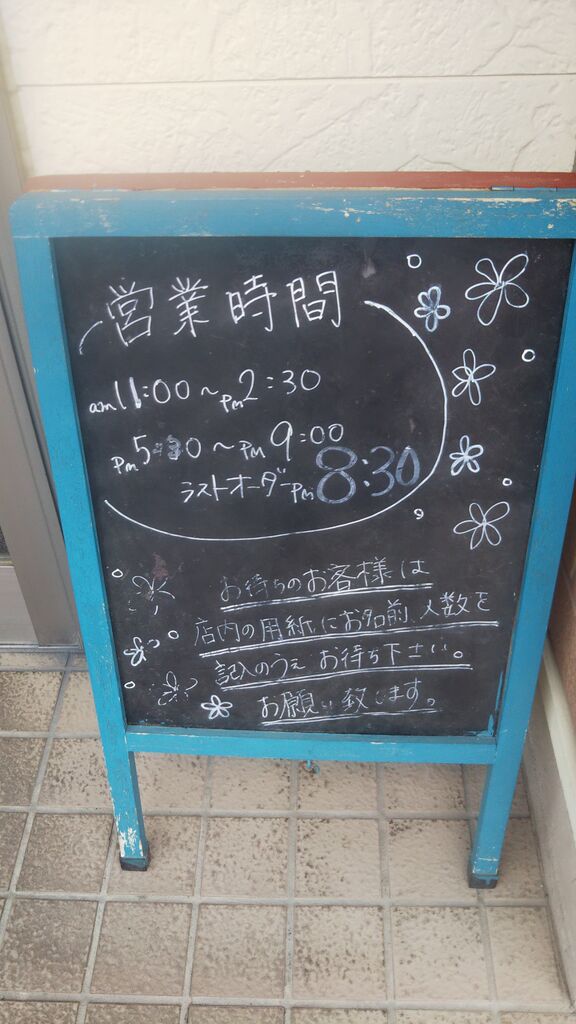 営業時間
am11:00～pm2:30
pm5:30～pm9:00
ラストオーダーpm8:30
お待ちのお客様は
店内の用紙にお名前、人数を
記入のうえお待ち下さい。
お願い致します。